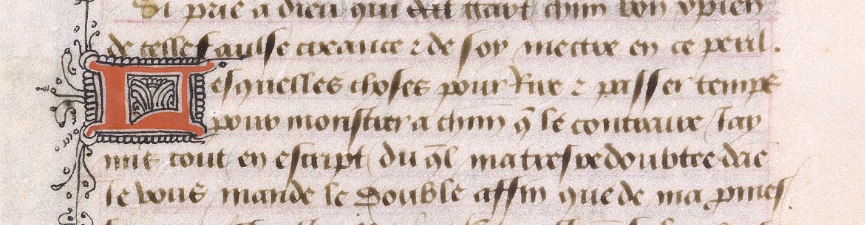 Si prie a dieu qui gart chun bon xpien
de telle faulse creance ⁊ de soy mectre en ce peril.
Lesquelles choses pour Rire ⁊ passer temps
pour monstrer a chun q̃ le contraire Jay
mis tout en escript du q̃l ma tresredoubtee dãe
Je vous mande le Double affin que de ma ꝓmes